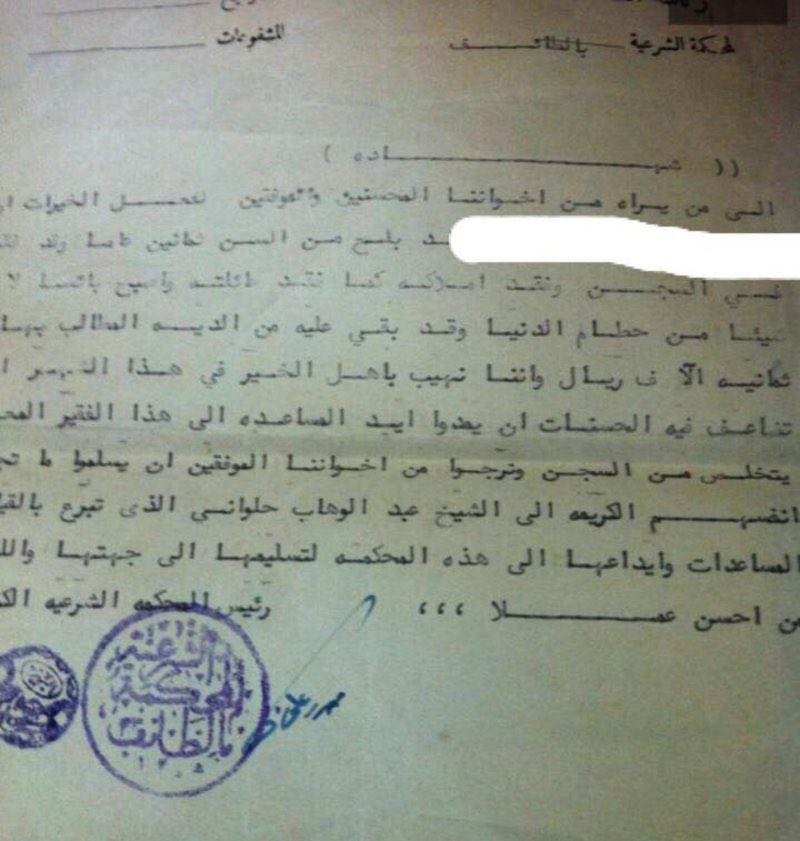 المشفوعات
المحكمة الشرعية بالطائف
(( شهاده )
الى من يراه من اخواننا المحسنين والموفقين لعمل الخيرات
قد بلغ من السن ثمانين عاما وقد
في السجن وفقد املاكه كما فقد عائلته واصبح بائسا لا
شيئا من حطام الدنيا وقد بقي عليه من الديه المطالب بها
ثمانيه الآف ريال واننا نهيب باهل الخير في هذا الشهر
تضاعف فيه الحسنات ان يمدوا ايد المساعده الى هذا الفقير
يتخلص من السجن ونرجوا من اخواننا الموفقين ان يسلموا ما
انفسهم الكريمه الى الشيخ عبد الوهاب حلوانى الذى تبرع
المساعدات وايداعها الى هذه المحكمه لتسليمها الى جهتها
من احسن عملا ،،،
رئيس المحكمه الشرعيه
المحكمة الشرعية بالطائف